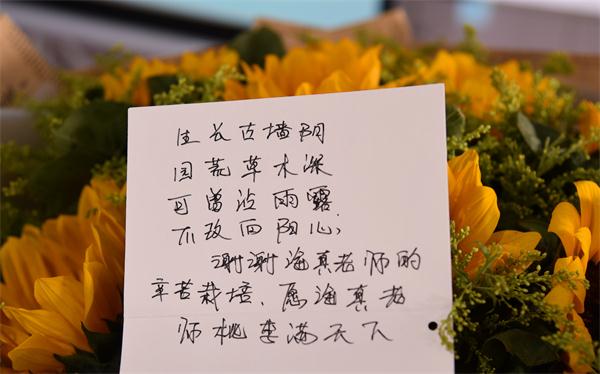 生长古墙阴
园荒草木深
可曾沾雨露
不改向阳心;
谢谢海真老师的
辛苦栽培、愿海真老
师桃李满天下